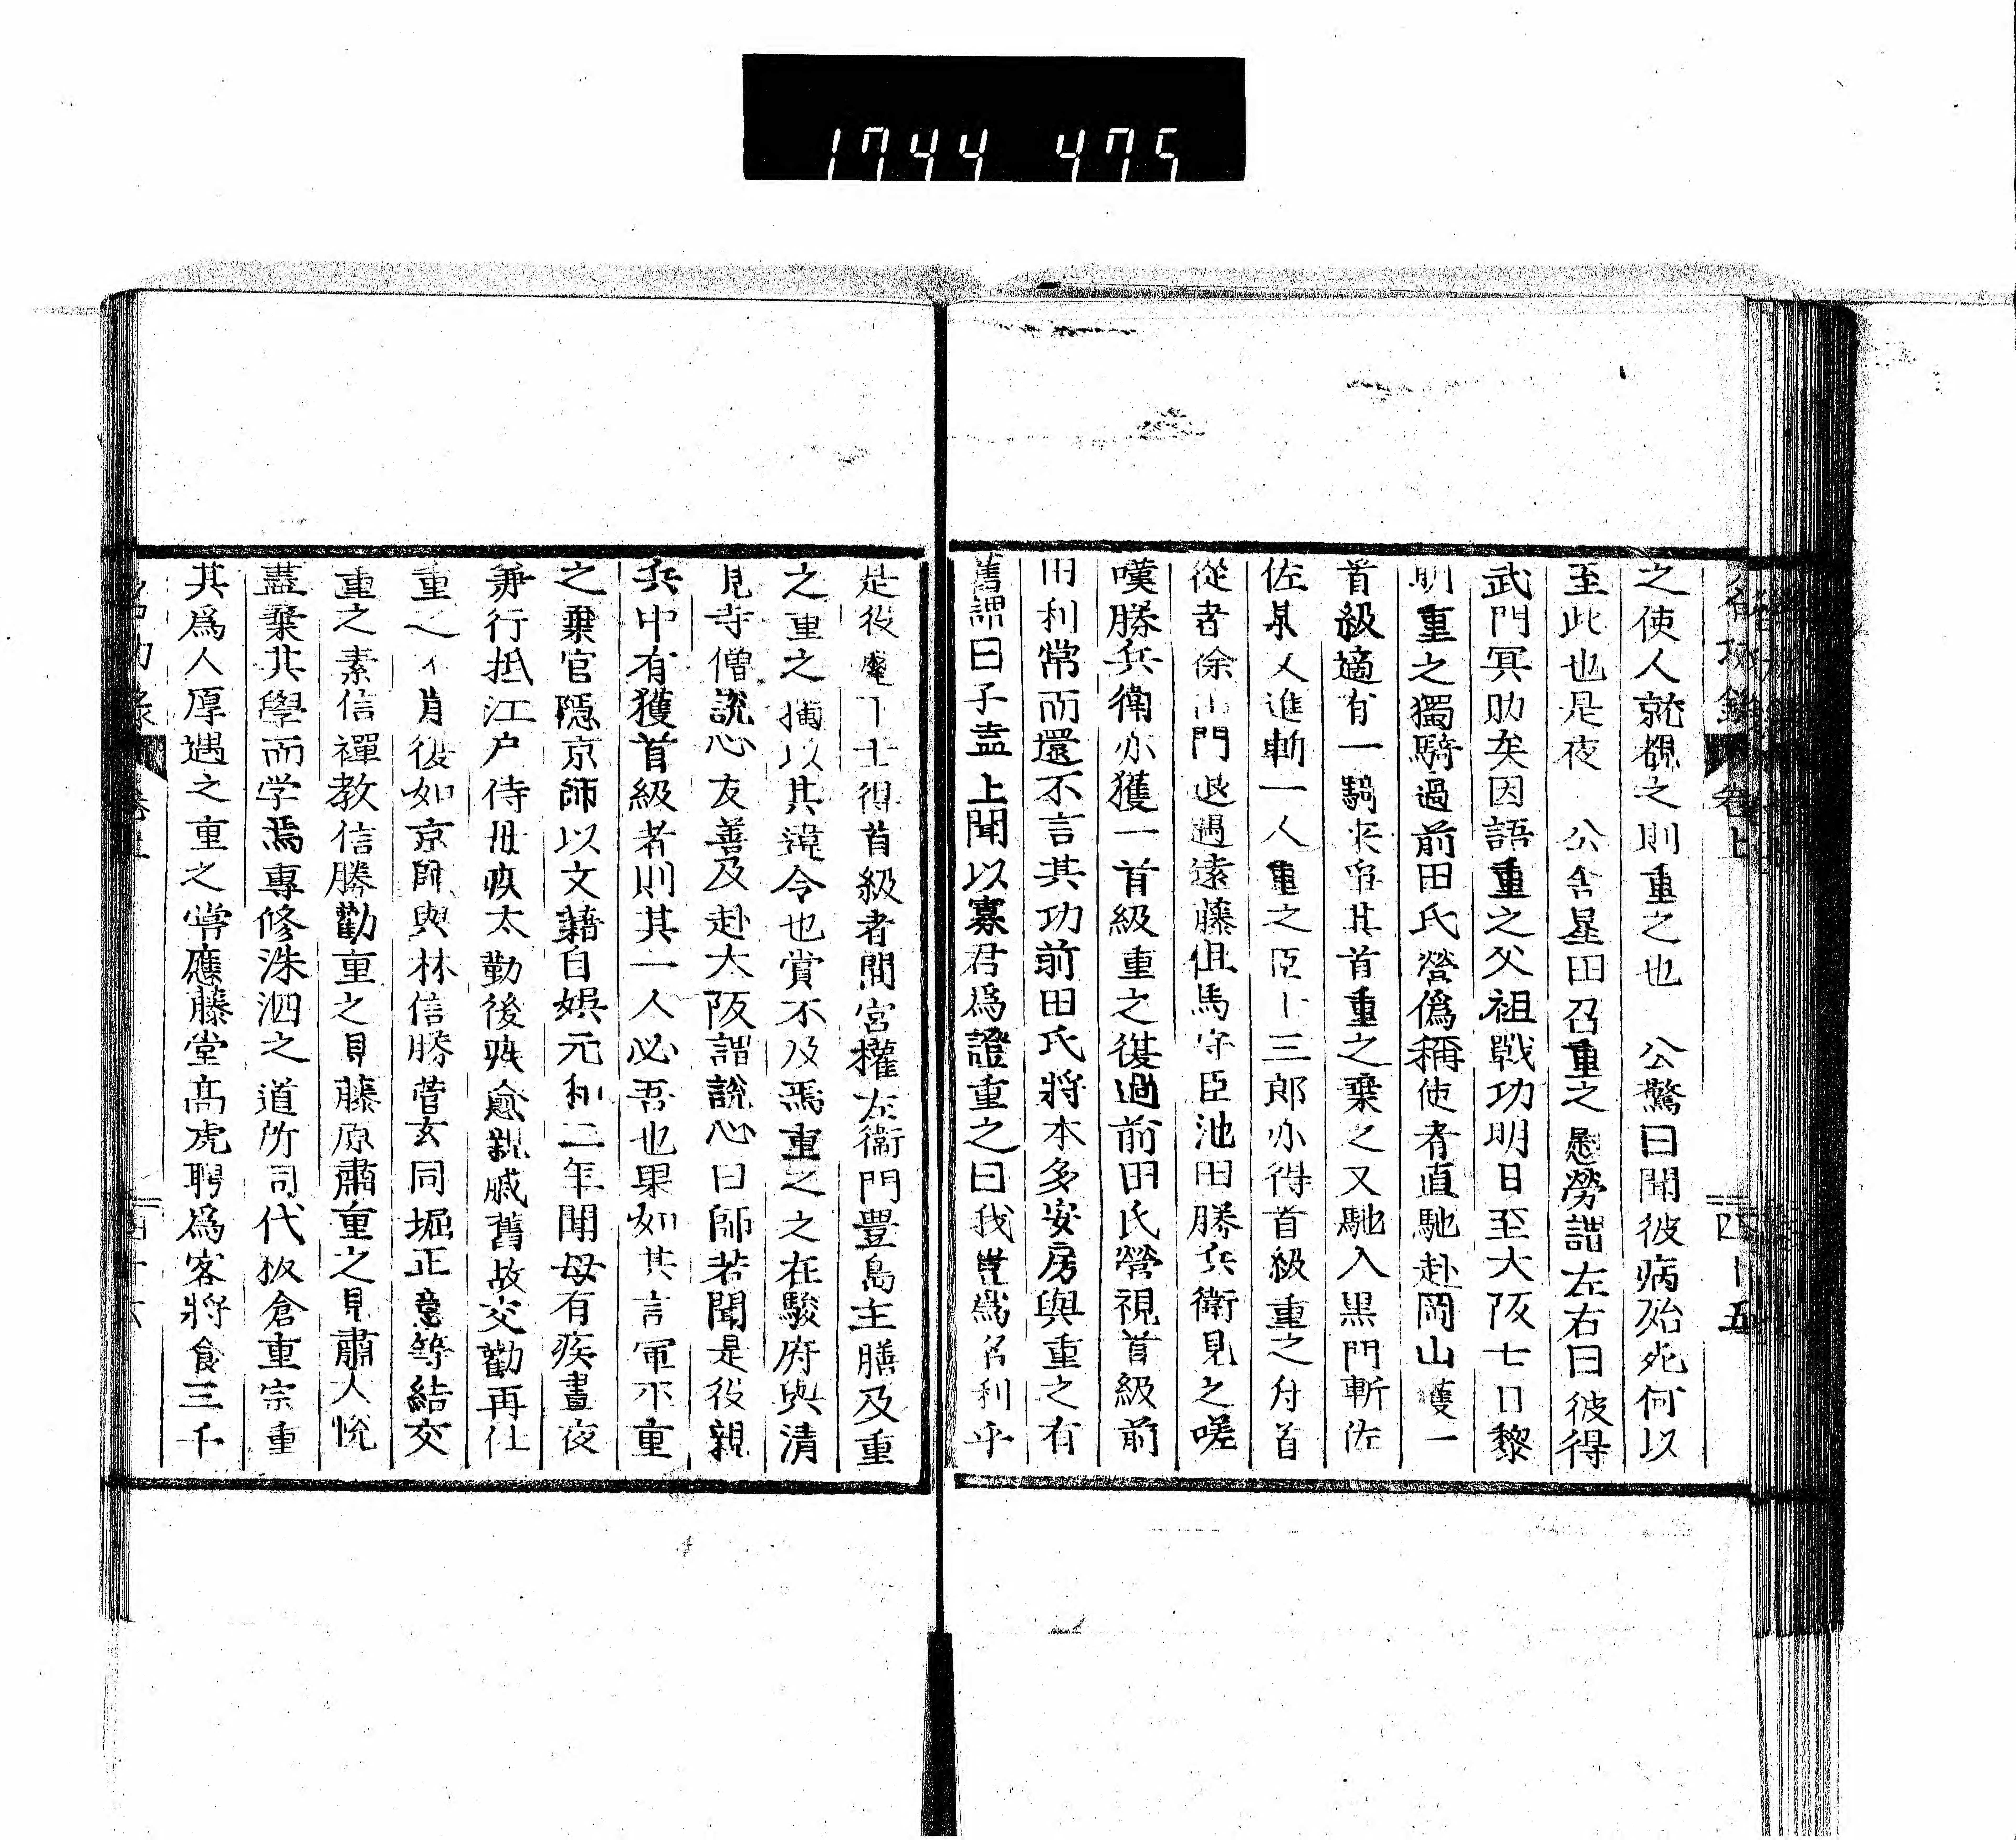 1744 475
之使人就覩之則重之也　公驚曰聞彼病殆死何以
至此也是夜　公舎星田召重之慰勞謂左右曰彼得
武門冥助矣因語重之父祖戰功明日至大阪七日黎
明重之獨騎過前田氏營僞稱使者直馳赴岡山獲一
首級適有一騎來爭其首重之棄之又馳入黒門斬佐
佐某又進斬一人重之臣卜三郎亦得首級重之付首
從者徐山門退遇遠藤但馬守臣池田勝兵衛見之嗟
嘆勝兵衛亦獲一首級重之復過前田氏營視首級前
田利常而還不言其功前田氏將本多安房與重之有
舊謂曰子盍上聞以寡君爲證重之曰我豈爲名利乎
是役麾下士得首級者間宮權左衞門豐島主膳及重
之重之獨以其違令也賞不及焉重之之在駿府與清
見寺僧說心友善及赴大阪謂說心曰師若聞是役親
兵中有獲首級者則其一人必吾也果如其言軍不重
之棄官隱京師以文藉自娯元和二年聞母有疾晝夜
兼行抵江戸侍母疾太勤後疾愈親戚舊故交勸再仕
重之不肯後如京師與林信勝菅玄同堀正意等結交
重之素信禪教信勝勸重之見藤原肅重之見肅大悅
盡棄其學而学焉專修洙泗之道所司代板倉重宗重
其爲人厚遇之重之嘗應藤堂高虎聘爲客將食三千